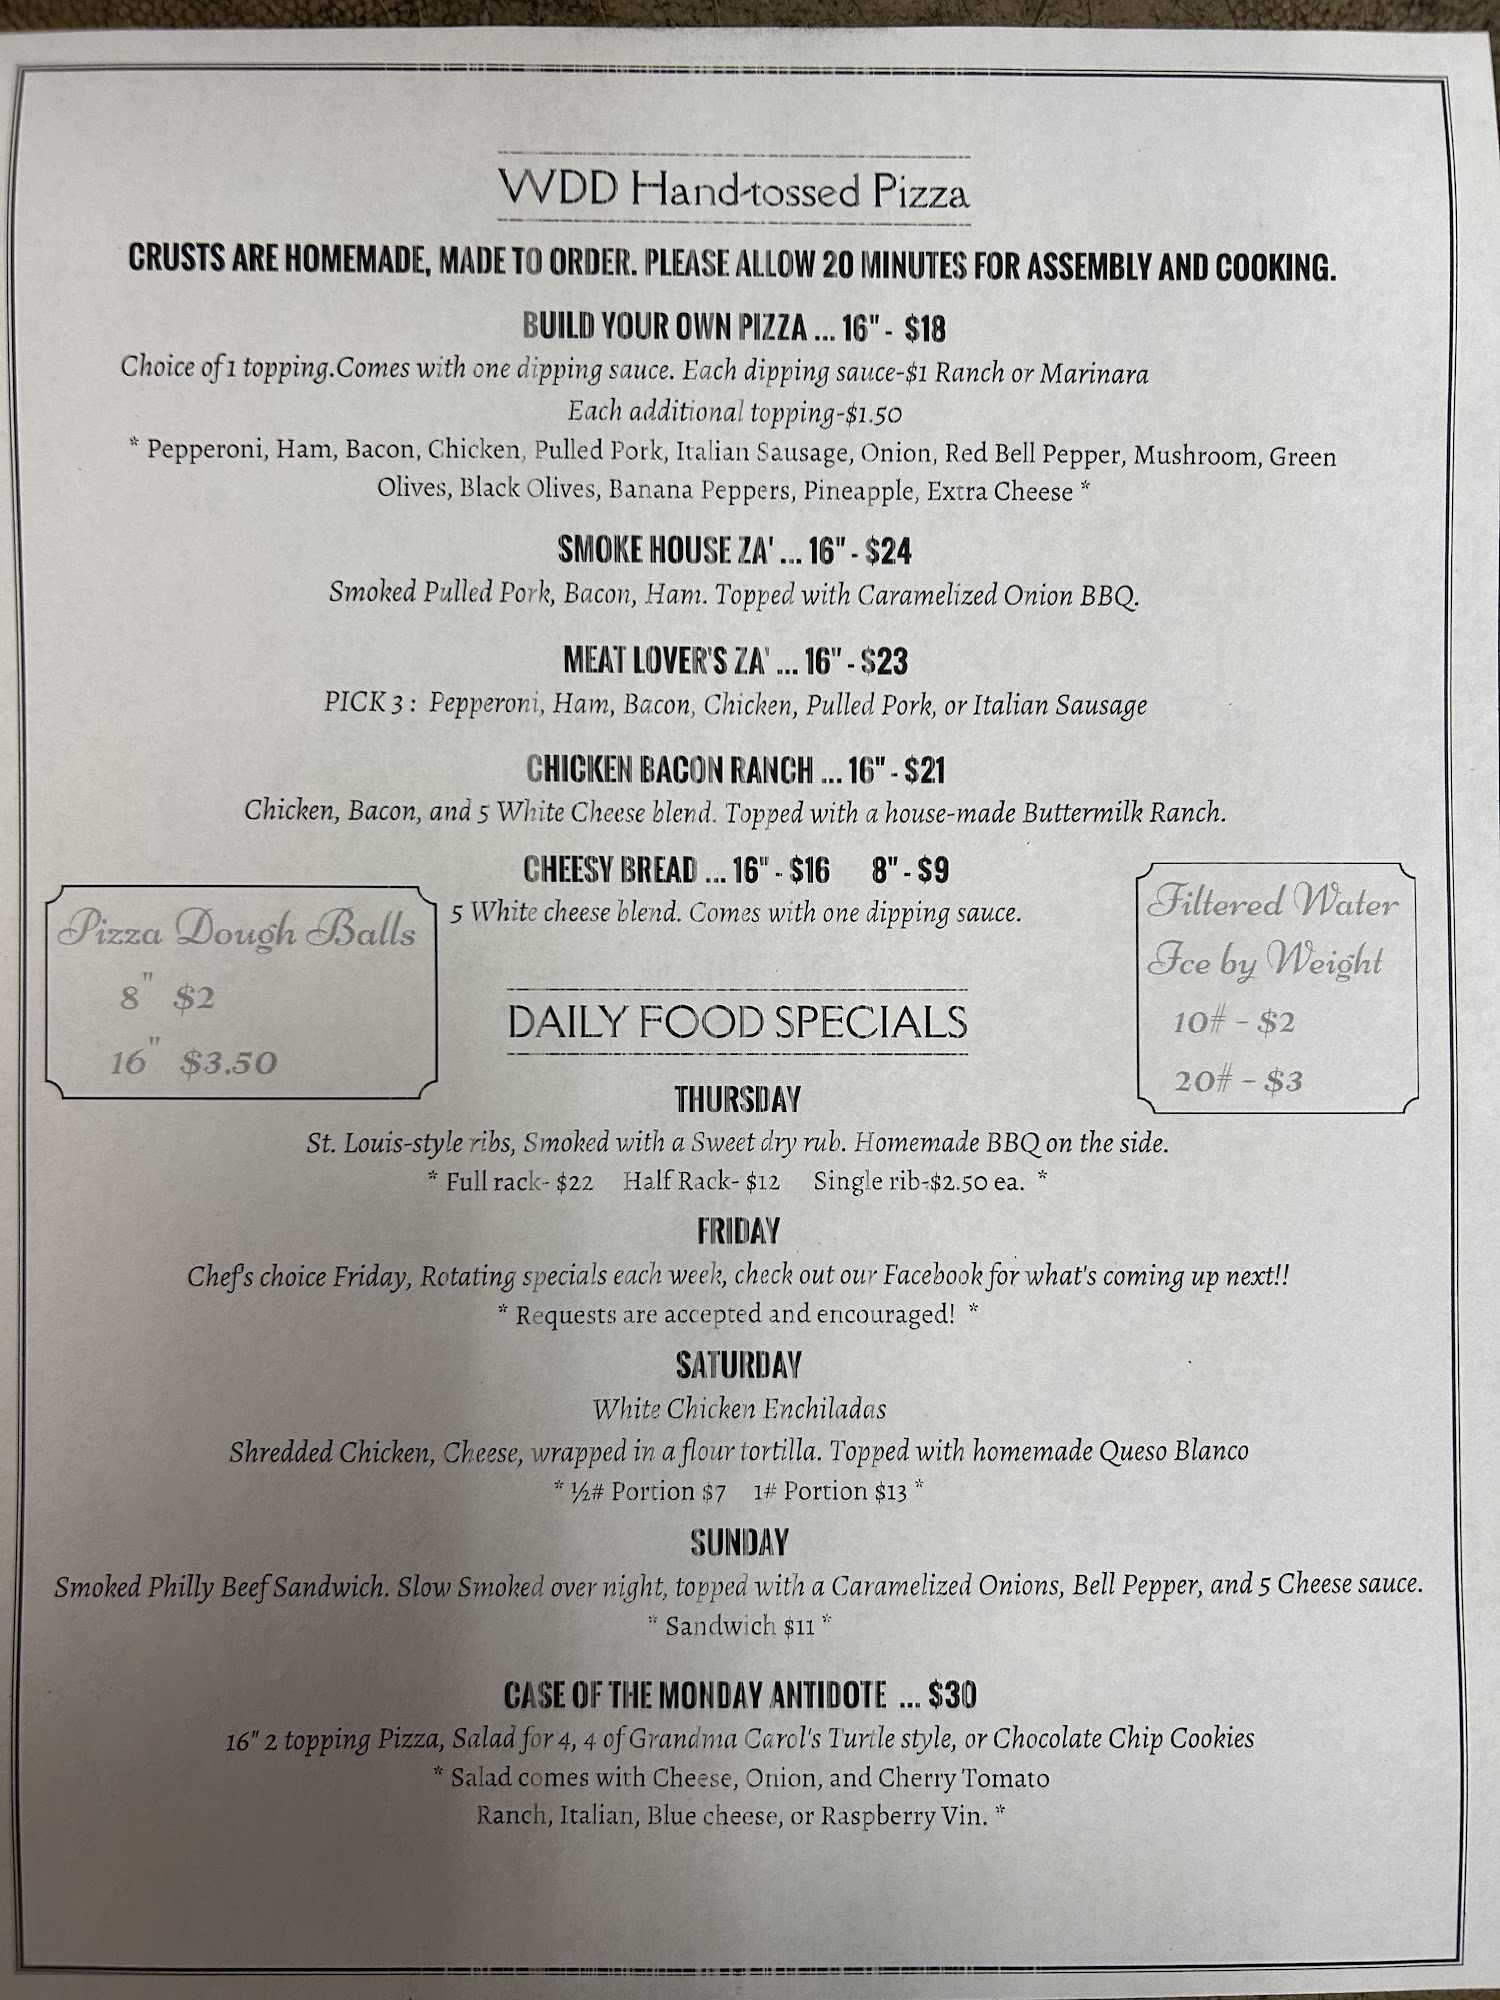 WDD Hand-tossed Pizza
CRUSTS ARE HOMEMADE, MADE TO ORDER. PLEASE ALLOW 20 MINUTES FOR ASSEMBLY AND COOKING.
BUILD YOUR OWN PIZZA ... 16" - $18
Choice of 1 topping.Comes with one dipping sauce. Each dipping sauce-$1 Ranch or Marinara
Each additional topping-$1.50
* Pepperoni, Ham, Bacon, Chicken, Pulled Pork, Italian Sausage, Onion, Red Bell Pepper, Mushroom, Green
Olives, Black Olives, Banana Peppers, Pineapple, Extra Cheese *
SMOKE HOUSE ZA' ... 16" - $24
Smoked Pulled Pork, Bacon, Ham. Topped with Caramelized Onion BBQ.
MEAT LOVER'S ZA' ... 16" - $23
PICK 3 : Pepperoni, Ham, Bacon, Chicken, Pulled Pork, or Italian Sausage
CHICKEN BACON RANCH ... 16" - $21
Chicken, Bacon, and 5 White Cheese blend. Topped with a house-made Buttermilk Ranch.
CHEESY BREAD ... 16" - $16 8" - $9
5 White cheese blend. Comes with one dipping sauce.
Pizza Dough Balls
8" $2
16" $3.50
Filtered Water
Ice by Weight
10# - $2
20# - $3
DAILY FOOD SPECIALS
THURSDAY
St. Louis-style ribs, Smoked with a Sweet dry rub. Homemade BBQ on the side.
* Full rack- $22 Half Rack- $12 Single rib-$2.50 ea. *
FRIDAY
Chef's choice Friday, Rotating specials each week, check out our Facebook for what's coming up next!!
* Requests are accepted and encouraged! *
SATURDAY
White Chicken Enchiladas
Shredded Chicken, Cheese, wrapped in a flour tortilla. Topped with homemade Queso Blanco
* ½# Portion $7 1# Portion $13 *
SUNDAY
Smoked Philly Beef Sandwich. Slow Smoked over night, topped with a Caramelized Onions, Bell Pepper, and 5 Cheese sauce.
* Sandwich $11 *
CASE OF THE MONDAY ANTIDOTE ... $30
16" 2 topping Pizza, Salad for 4, 4 of Grandma Carol's Turtle style, or Chocolate Chip Cookies
* Salad comes with Cheese, Onion, and Cherry Tomato
Ranch, Italian, Blue cheese, or Raspberry Vin. *